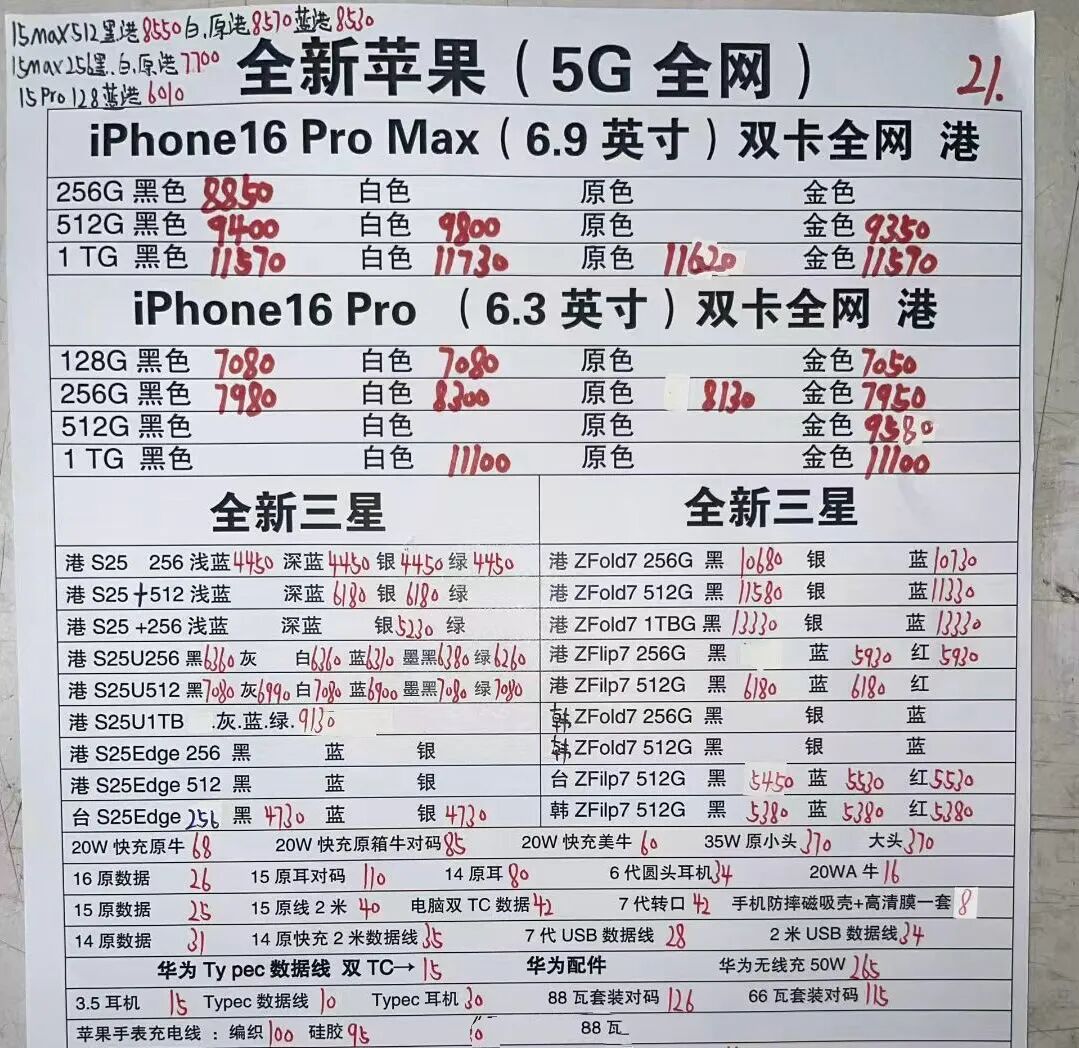 15max512黑.港8550白.原港8570蓝港8530
15max256黑.白.原港7700
15Pro 128蓝港6010
全新苹果（5G 全网）
21.
iPhone16 Pro Max（6.9 英寸）双卡全网 港
256G 黑色 8850 白色 原色 金色
512G 黑色 9400 白色 9800 原色 金色 9350
1 TG 黑色 11570 白色 11730 原色 11620 金色 11570
iPhone16 Pro （6.3 英寸）双卡全网 港
128G 黑色 7080 白色 7080 原色 金色 7050
256G 黑色 7980 白色 8300 原色 8130 金色 7950
512G 黑色 白色 原色 金色 9580
1 TG 黑色 白色 11100 原色 金色 11100
全新三星 全新三星
港 S25 256 浅蓝 4450 深蓝 4450 银 4450 绿 4450 港 ZFold7 256G 黑 10680 银 蓝 10730
港 S25+512 浅蓝 深蓝 6180 银 6180 绿 港 ZFold7 512G 黑 11580 银 蓝 11330
港 S25 +256 浅蓝 深蓝 银 5230 绿 港 ZFold7 1TBG 黑 13330 银 蓝 13330
港 S25U256 黑 6360 灰 白 6360 蓝 6310 墨黑 6380 绿 6260 港 ZFlip7 256G 黑 蓝 5930 红 5930
港 S25U512 黑 7080 灰 6990 白 7080 蓝 6900 墨黑 7080 绿 7080 港 ZFilp7 512G 黑 6180 蓝 6180 红
港 S25U1TB .灰.蓝.绿. 9130 韩 ZFold7 256G 黑 银 蓝
港 S25Edge 256 黑 蓝 银 韩 ZFold7 512G 黑 银 蓝
港 S25Edge 512 黑 蓝 银 台 ZFilp7 512G 黑 5450 蓝 5530 红 5530
台 S25Edge 256 黑 4730 蓝 银 4730 韩 ZFilp7 512G 黑 5380 蓝 5380 红 5380
20W 快充原牛 68 20W 快充原箱牛对码 85 20W 快充美牛 60 35W 原小头 370 大头 370
16 原数据 26 15 原耳对码 110 14 原耳 80 6 代圆头耳机 34 20WA 牛 16
15 原数据 25 15 原线 2 米 40 电脑双 TC 数据 42 7 代转口 42 手机防摔磁吸壳+高清膜一套 8
14 原数据 31 14 原快充 2 米数据线 35 7 代 USB 数据线 28 2 米 USB 数据线 34
华为 Ty pec 数据线 双 TC→ 15 华为配件 华为无线充 50W 265
3.5 耳机 15 Typec 数据线 10 Typec 耳机 30 88 瓦套装对码 126 66 瓦套装对码 115
苹果手表充电线 ：编织 100 硅胶 95 88 瓦